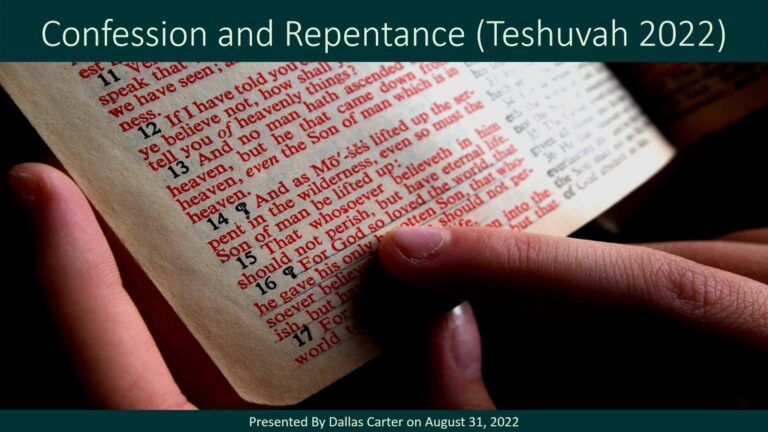 Confession and Repentance (Teshuvah 2022)
11 Ver
speak that
we have seen; a
ness.
12 If I have told you e
ye believe not, how shall y
tell you of heavenly things?
13 And no man hath ascended
heaven, but he that came down from
heaven, even the Son of man which is in
heaven.
14 ¶ And as Mō´-ṣĕṣ lifted up the ser-
pent in the wilderness, even so must the
Son of man be lifted up:
15 That whosoever believeth in him
should not perish, but have eternal life.
16 ¶ For God so loved the world, that
he gave his only gotten Son, that who-
soever believ should not per-
ish, but hav life.
17 For on into the
world to but that
of God abideth
Presented By Dallas Carter on August 31, 2022